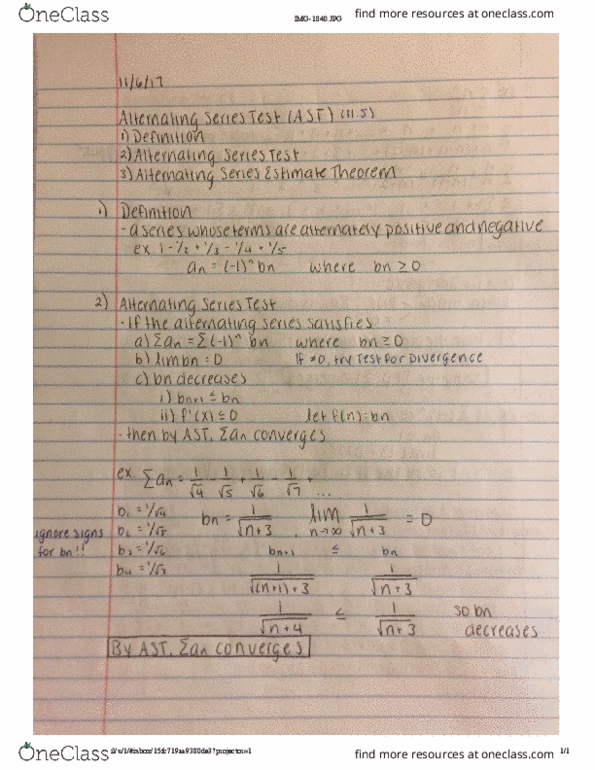 OneClass
IMG-1840.JPG
find more resources at oneclass.com
11/6/17
Alternating Series Test (AST) (11.5)
1) Definition
2) Alternating Series Test
3) Alternating Series Estimate Theorem
1) Definition
- a series whose terms are alternately positive and negative
ex 1 - 1/2 + 1/3 - 1/4 + 1/5
an = (-1)^n bn where bn ≥ 0
2) Alternating Series Test
- If the alternating series satisfies
a) Σan = Σ(-1)^n bn where bn ≥ 0
b) lim bn = 0 If ≠0, try Test for Divergence
c) bn decreases
i) bn+1 ≤ bn
ii) f'(x) ≤ 0 let f(n) = bn
- then by AST, Σan converges
ex. Σan = 1/√4 - 1/√5 + 1/√6 - 1/√7 + ...
b1 = 1/√4 bn = 1/√n+3 , lim n→∞ 1/√n+3 = 0
ignore signs for bn!!
b2 = 1/√5
b3 = 1/√6 bn+1 ≤ bn
b4 = 1/√7
1/√(n+1)+3 1/√n+3
1/√n+4 ≤ 1/√n+3 so bn decreases
By AST, Σan converges
OneClass
1/1
find more resources at oneclass.com